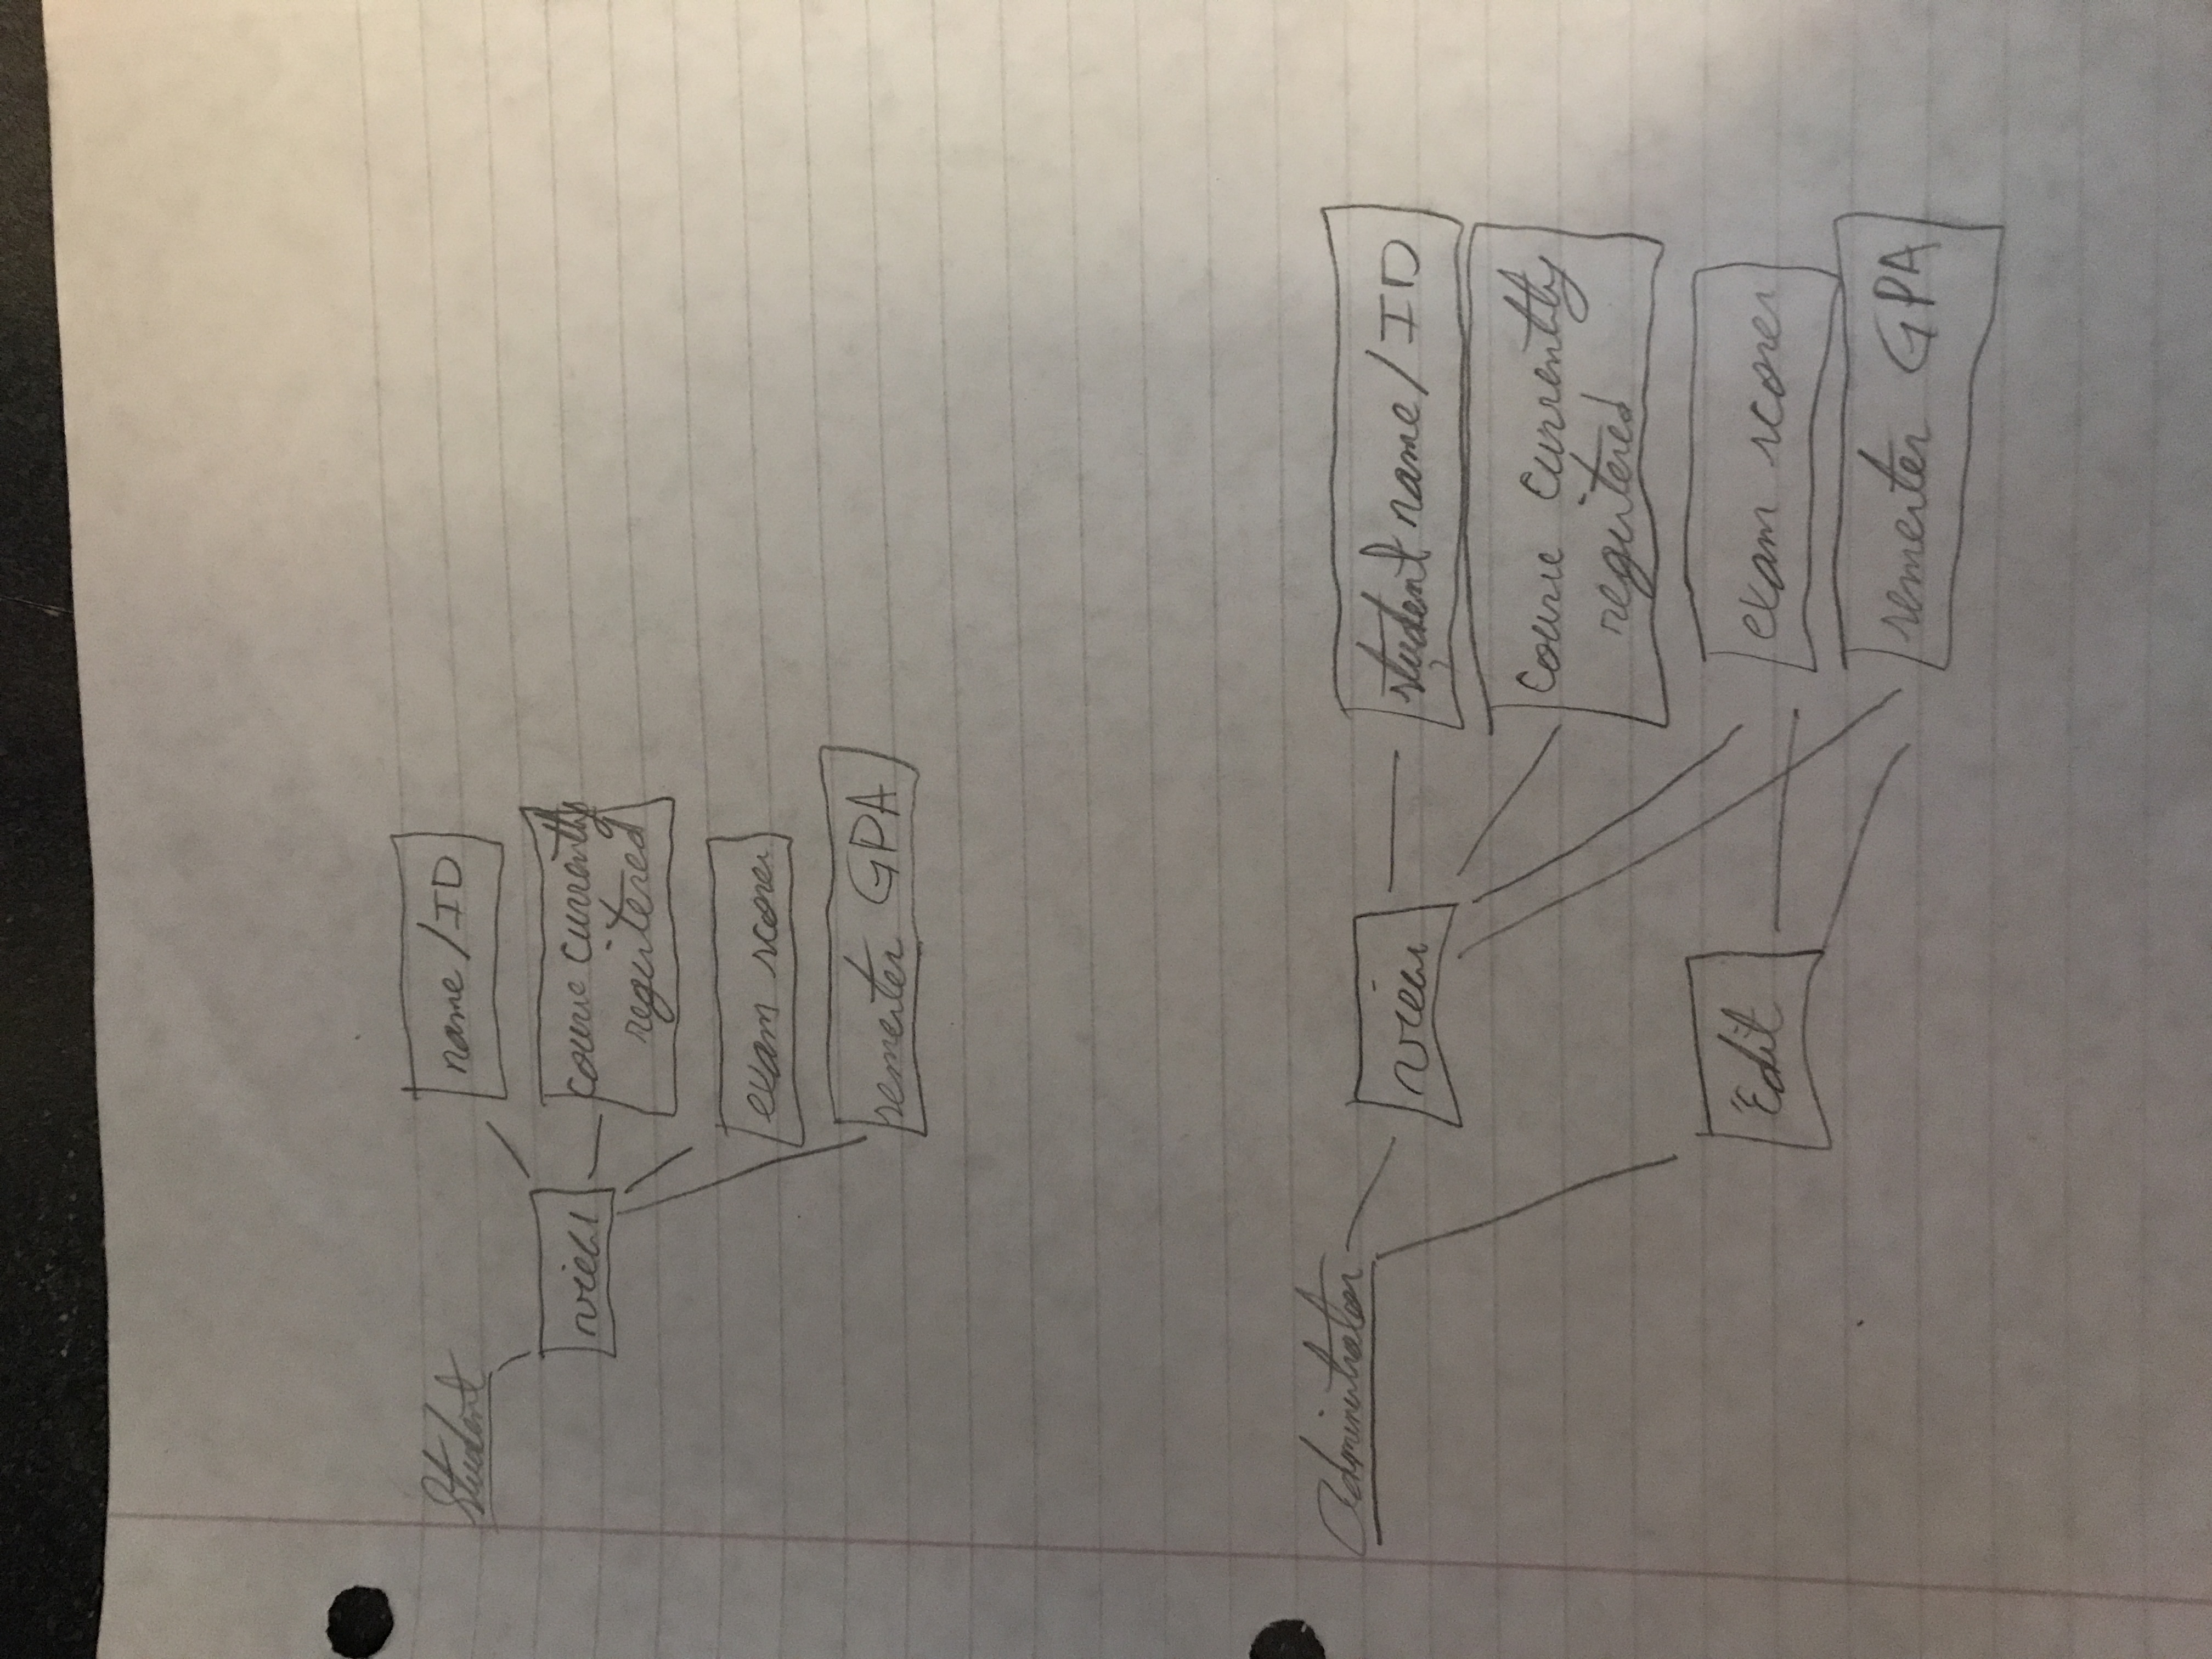 Student
name / ID
view
course currently
registered
exam scores
semester GPA
Administrator
view
student name / ID
course currently
registered
Edit
exam scores
semester GPA